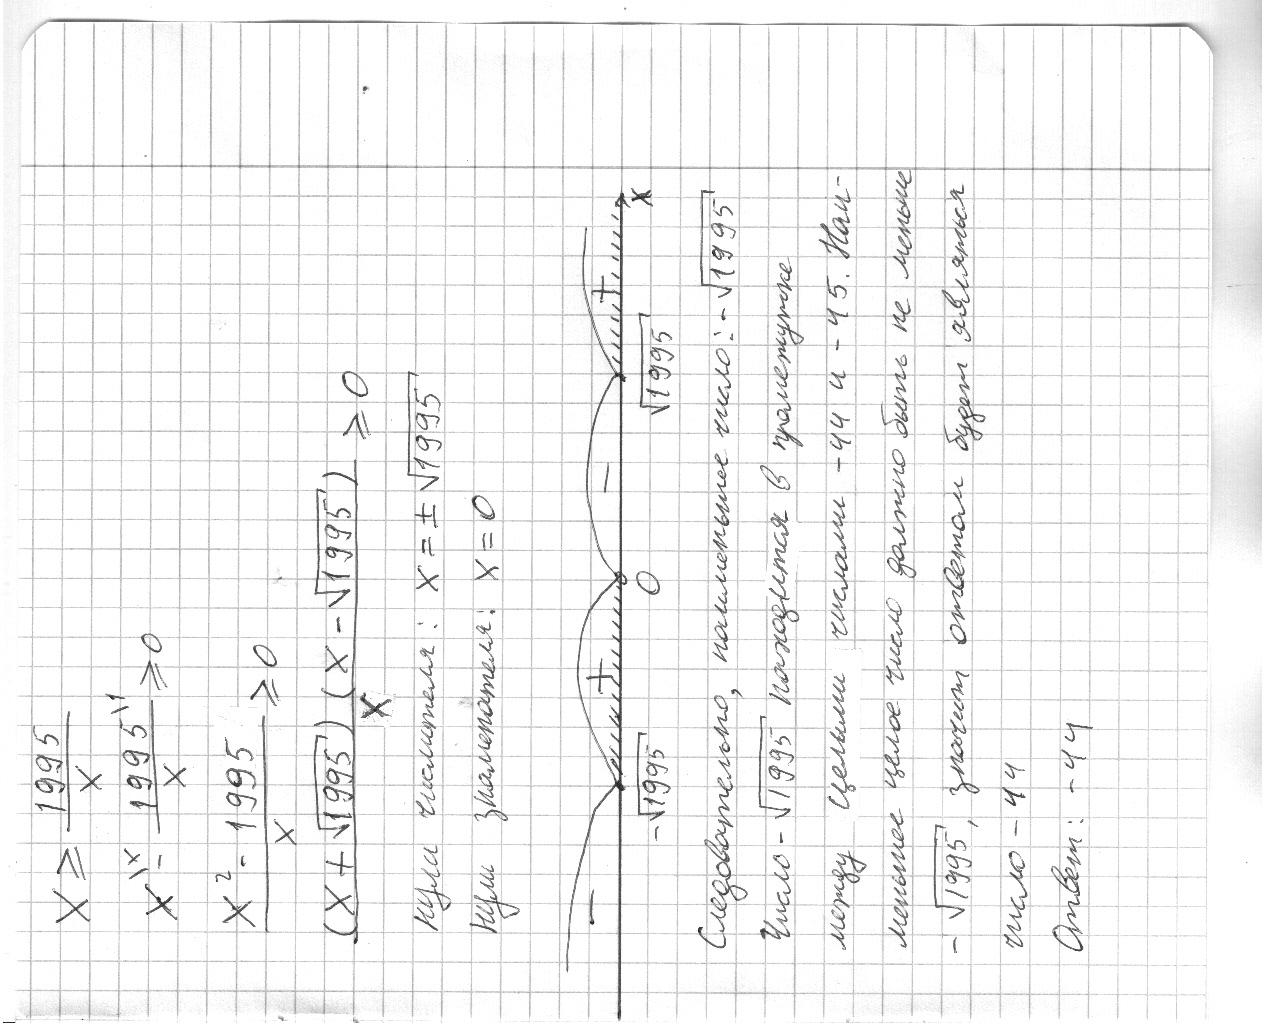 x ≥ 1995/x
x^{\x} - 1995^{\1}/x ≥ 0
x² - 1995/x ≥ 0
(x + √1995)(x - √1995)/x ≥ 0
Нули числителя: x = ± √1995
Нули знаменателя: x = 0
- + - +
-√1995 0 √1995 x
Следовательно, наименьшее число: -√1995
Число -√1995 находится в промежутке
между целыми числами -44 и -45. Наи-
меньшее целое число должно быть не меньше
-√1995, значит ответом будет являться
число -44
Ответ: -44